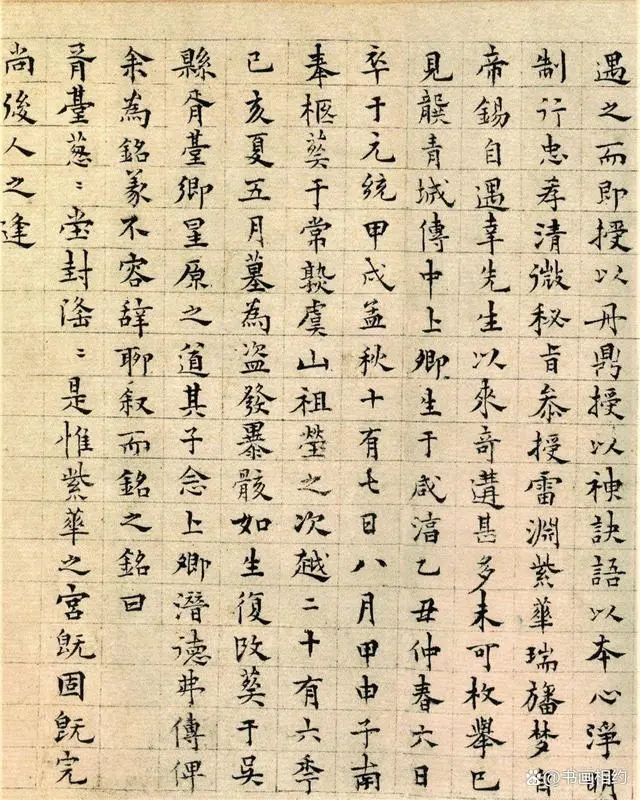 遇之而即授以丹鼎授以神訣語以本心淨明
制行忠孝清微秘旨叅授雷淵紫華瑞旛夢
帝錫自遇幸先生以來奇遘甚多未可枚舉已
見龔青城傳中上卿生于咸淳乙丑仲春六日
卒于元統甲戌孟秋十有七日八月甲申子南
奉柩葬于常熟虞山祖塋之次越二十有六秊
己亥夏五月墓為盜發暴骸如生復改葬于吳
縣胥臺鄉星原之道其子念上卿潛德弗傳俾
余為銘義不容辭聊叙而銘之銘曰
胥臺葱〻堂封窿〻是惟紫華之宮旣固旣完
尚後人之逢
书画相约